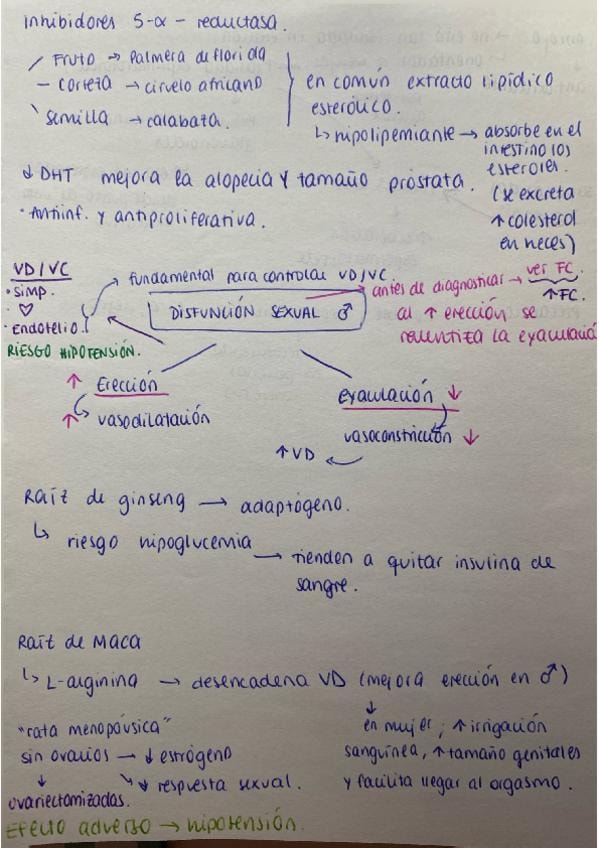 Inhibidores 5-α - reductasa.
Fruto → Palmera de florida
- corteza → ciruelo africano
Semilla → calabaza.
en comun extracto lipídico
esterólico.
↳ hipolipemiante → absorbe en el
intestino los
esteroles.
(se excreta
↑ colesterol
en heces)
↓ DHT mejora la alopecia y tamaño próstata.
· Antiinf. y antiproliferativa.
VD/VC
· simp.
♡
· Endotelio
RIESGO HIPOTENSIÓN.
fundamental para controlar VD/VC.
DISFUNCIÓN SEXUAL ♂
antes de diagnosticar → ver FC.
↑ FC.
al ↑ erección se
ralentiza la eyaculació
↑ Erección
↑ vasodilatación
eyaculación ↓
vasoconstricción ↓
↑ VD ←
Raíz de ginseng → adaptógeno.
↳ riesgo hipoglucemia → tienden a quitar insulina de
sangre.
Raíz de Maca
↳ L-arginina → desencadena VD (mejora erección en ♂)
↓
en mujer; ↑ irrigación
sanguínea, ↑ tamaño genitales
y facilita llegar al orgasmo.
"rata menopáusica"
sin ovarios → ↓ estrógeno
↓ ↘ ↓ respuesta sexual.
ovariectomizadas.
Efecto adverso → hipotensión.